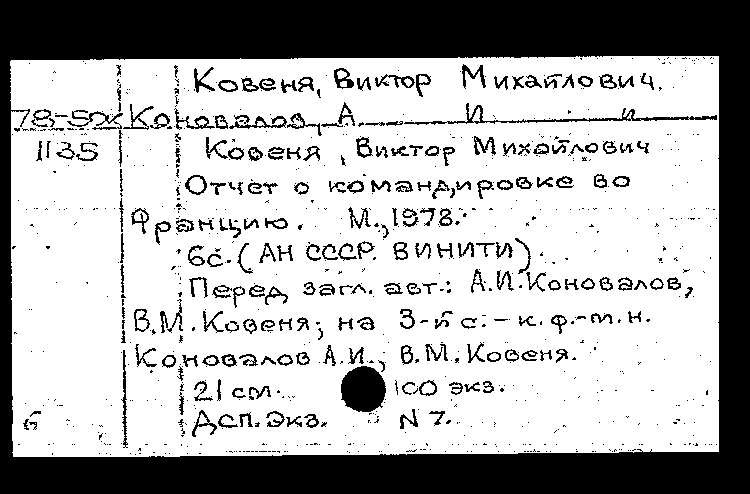 Ковеня, Виктор Михайлович.
78-5дк Коновалов, А. И. и
1135 Ковеня, Виктор Михайлович
Отчет о командировке во
Францию. М., 1978.
6с. (АН СССР. ВИНИТИ)
Перед загл. авт.: А.И.Коновалов,
В.М.Ковеня; на 3-й с. – к.ф.-м.н.
Коновалов А.И., В.М.Ковеня.
21 см. 100 экз.
б Дсп. Экз. N 7.